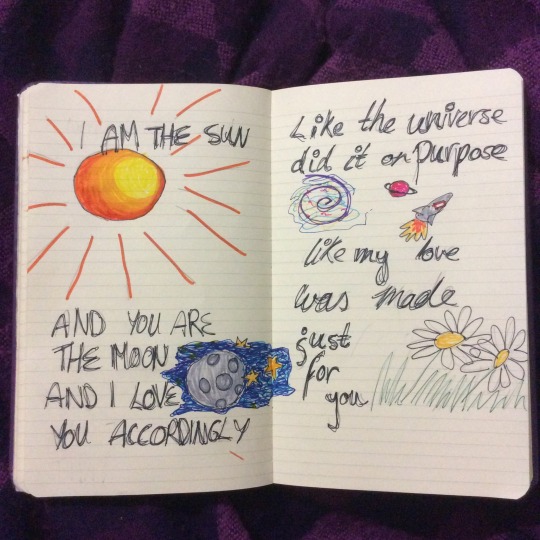 I AM THE SUN
AND YOU ARE
THE MOON
AND I LOVE
YOU ACCORDINGLY
Like the universe
did it on Purpose
like my love
was made
just
for
you